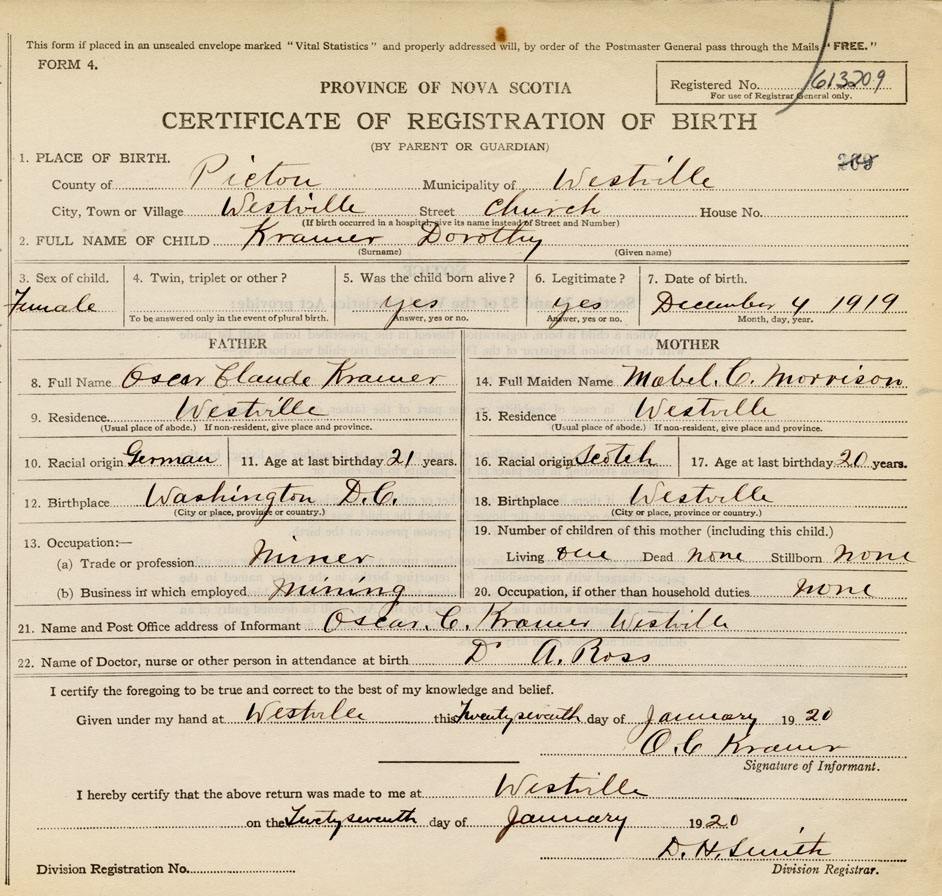 This form if placed in an unsealed envelope marked "Vital Statistics" and properly addressed will, by order of the Postmaster General pass through the Mails "FREE."
FORM 4.
Registered No. 613209
For use of Registrar General only.
PROVINCE OF NOVA SCOTIA
CERTIFICATE OF REGISTRATION OF BIRTH
(BY PARENT OR GUARDIAN)
1. PLACE OF BIRTH.
County of Pictou Municipality of Westville
City, Town or Village Westville Street Church House No.
(If birth occurred in a hospital, give its name instead of Street and Number)
2. FULL NAME OF CHILD Kramer Dorothy
(Surname) (Given name)
3. Sex of child. 4. Twin, triplet or other? 5. Was the child born alive? 6. Legitimate? 7. Date of birth.
Female yes yes December 4 1919
To be answered only in the event of plural birth. Answer, yes or no. Answer, yes or no. Month, day, year.
FATHER MOTHER
8. Full Name Oscar Claude Kramer 14. Full Maiden Name Mabel. C. Morrison
9. Residence. Westville 15. Residence Westville
(Usual place of abode.) If non-resident, give place and province. (Usual place of abode.) If non-resident, give place and province.
10. Racial origin German 11. Age at last birthday 21 years. 16. Racial origin Scotch 17. Age at last birthday 20 years.
12. Birthplace Washington D.C. 18. Birthplace Westville
(City or place, province or country.) (City or place, province or country.)
13. Occupation:— 19. Number of children of this mother (including this child.)
(a) Trade or profession Miner Living one Dead none Stillborn none
(b) Business in which employed mining 20. Occupation, if other than household duties none
21. Name and Post Office address of Informant Oscar. C. Kramer Westville
22. Name of Doctor, nurse or other person in attendance at birth Dr A. Ross
I certify the foregoing to be true and correct to the best of my knowledge and belief.
Given under my hand at Westville this Twenty seventh day of January 1920
O. C Kramer
Signature of Informant.
I hereby certify that the above return was made to me at Westville
on the Twenty seventh day of January 1920
D. H. Smith
Division Registrar.
Division Registration No.